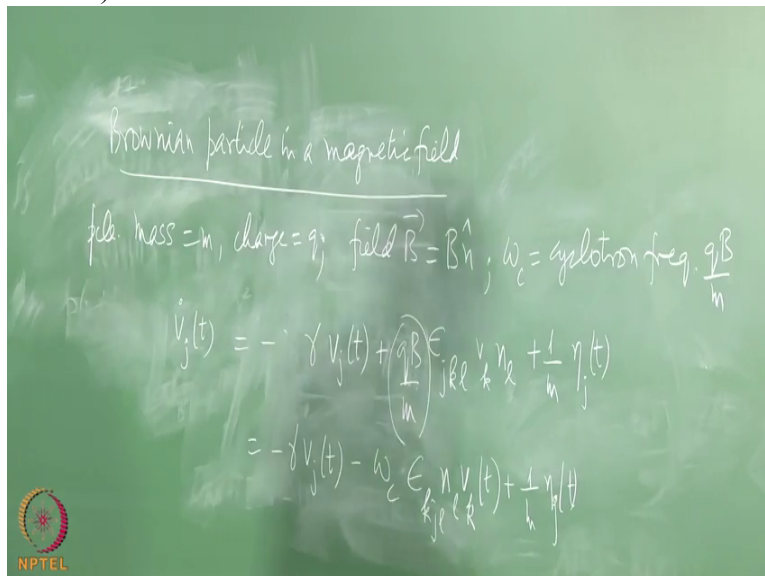 Brownian particle in a magnetic field
pcle. mass = m, charge = q; field B⃗ = B n̂ ; ω_c = cyclotron freq. qB/m
v̇_j(t) = - γ v_j(t) + (qB/m) ε_jkl v_k n_l + 1/m η_j(t)
= -γ v_j(t) - ω_c ε_kjl n_l v_k(t) + 1/m η_j(t)
NPTEL